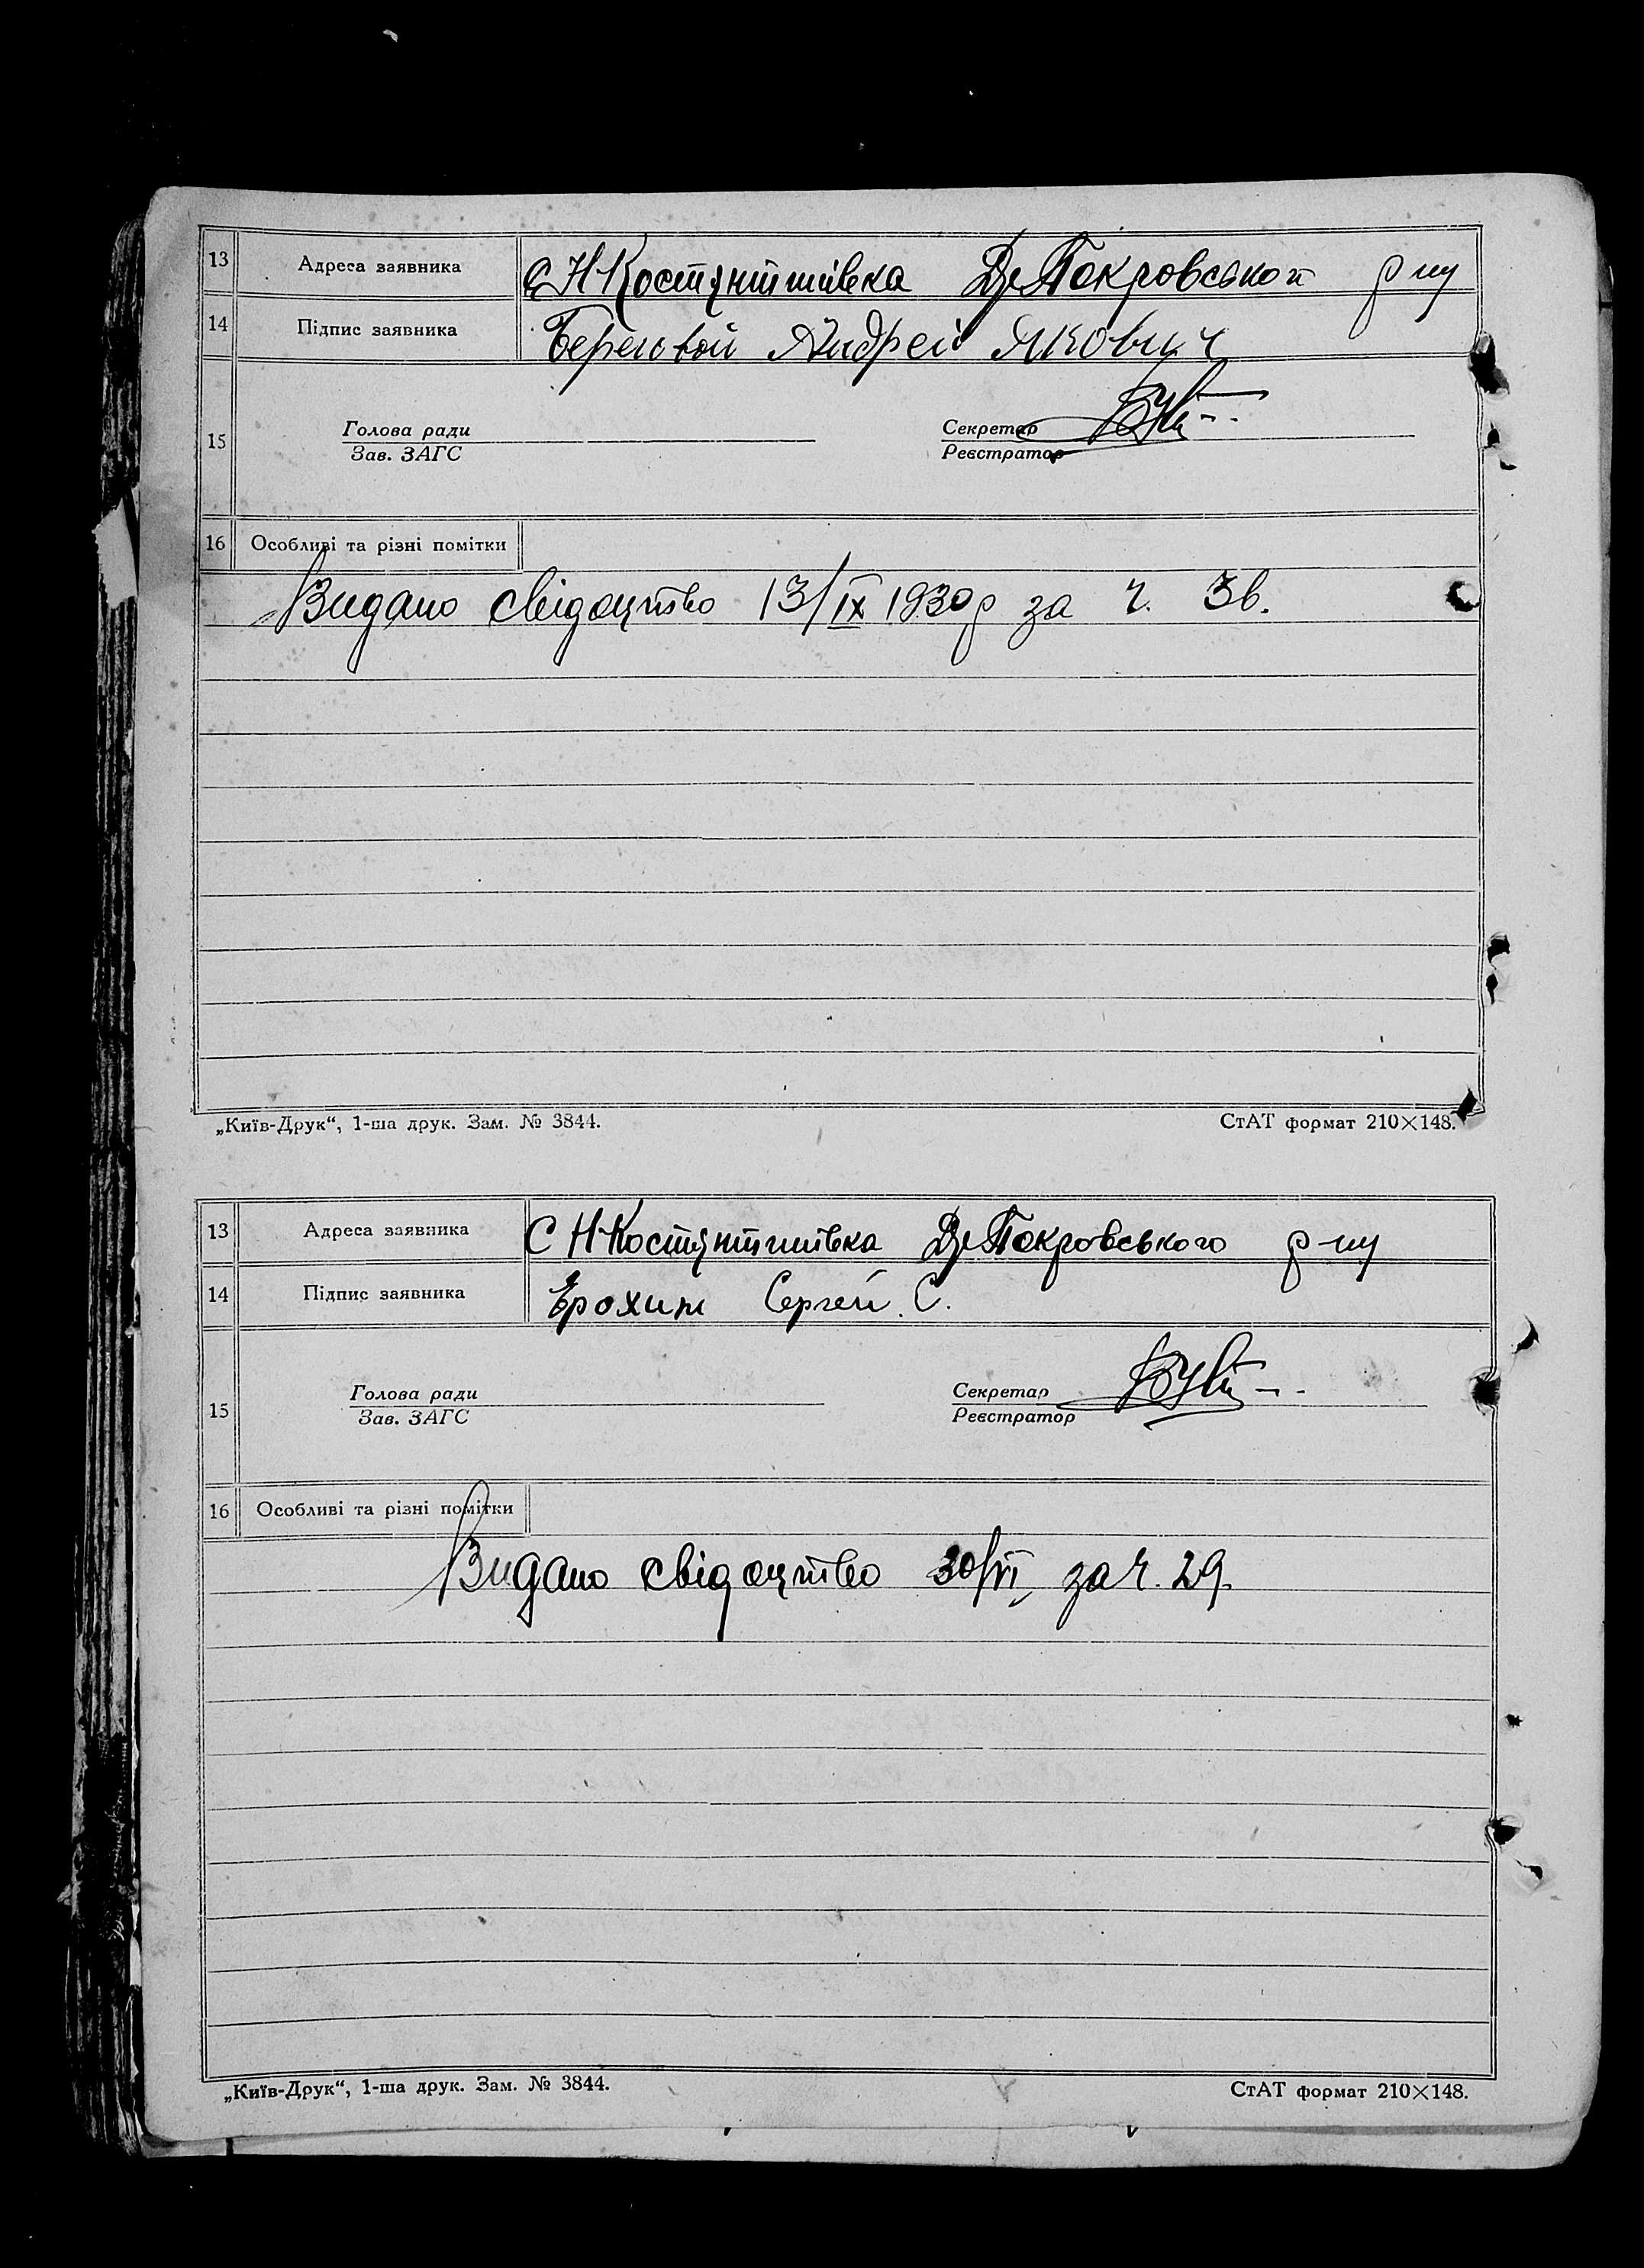 13 Адреса заявника С Н-Костянтинівка Дн Покровського р-ну
14 Підпис заявника Береговой Андрей Якович
15 Голова ради Секретар
Зав. ЗАГС Реєстратор
16 Особливі та різні помітки
Видано свідоцтво 13/IX 1930 р за ч. 36.
„Київ-Друк“, 1-ша друк. Зам. № 3844. СтАТ формат 210×148.
13 Адреса заявника С Н-Костянтинівка Покровського р-ну
14 Підпис заявника Ерохин Сергей С.
15 Голова ради Секретар
Зав. ЗАГС Реєстратор
16 Особливі та різні помітки
Видано свідоцтво 30/VI за ч. 29.
„Київ-Друк“, 1-ша друк. Зам. № 3844. СтАТ формат 210×148.